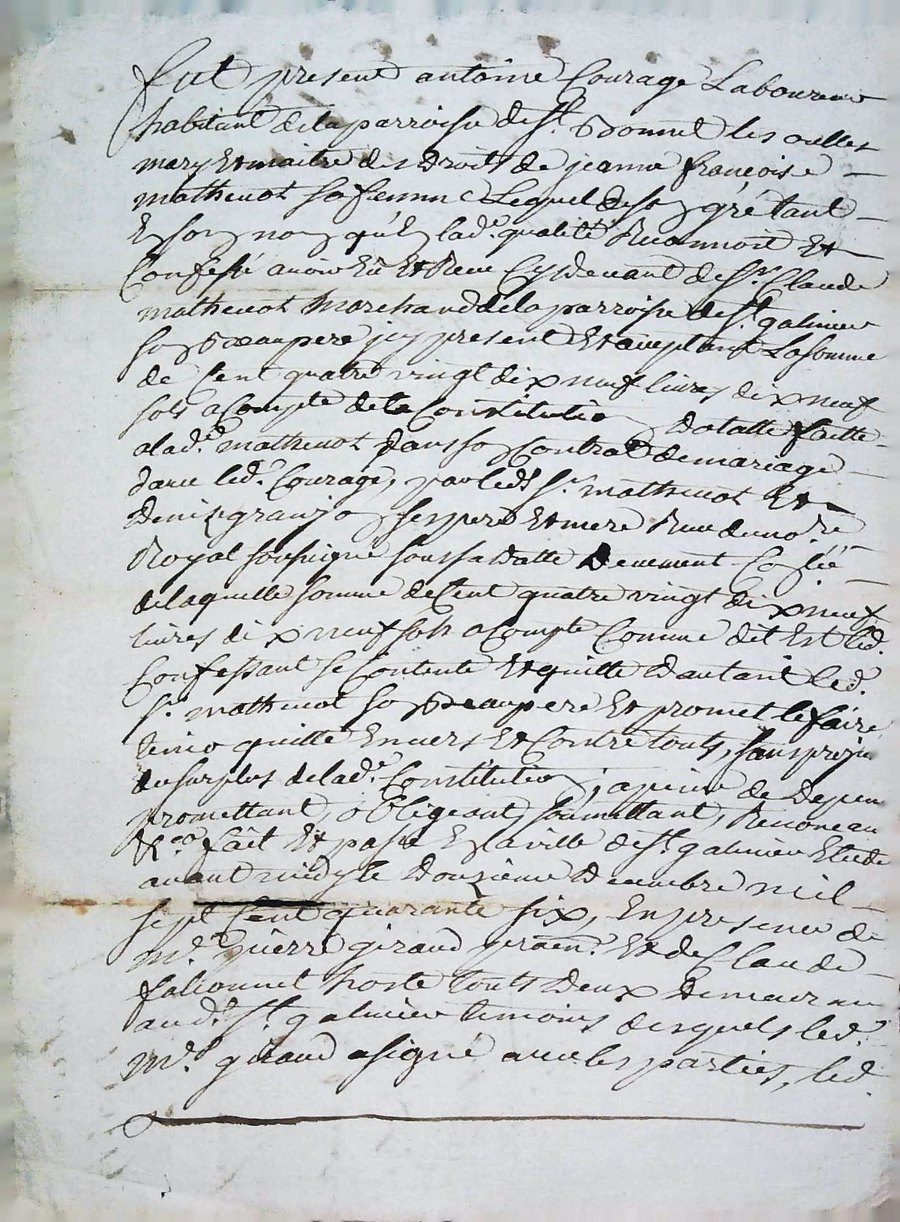 fut present antoine Courage Laboureur
habitant dela parroisse de St. Bonnet les oulles
mary Et maitre des Droits de jeanne françoise
mathenot sa femme Lequel deson gré tant
En son nom qu'En lad.e qualité Reconnoit Et
Confesse avoir Eu Et Reçu Cy devant de Sr. Claude
mathenot Marchand dela parroisse de St. galmier
son Beaupere jcy present Et acceptant La somme
de Cent quatre vingt dix neuf livres dix neuf
sols a Compte de la Constitution Dotalle faitte
alad.e mathenot Dans son Contrat de mariage
avec led. Courage, par led. Sr. mathenot Et
Denize granjon ses pere Et mere Reçu de no.re
Royal soussigné sous sa Datte Deuement Co.lé
de laquelle somme de Cent quatre vingt dix neuf
livres dix neuf sols a Compte Comme dit Est led.
Confessant se Contente Et quitte Dautant led.
Sr. mathenot son Beaupere Et promet le faire
tenir quitte Envers Et Contre touts, sans prejud.
du surplus de lad.e Constitution, a peine de Depens
promettant, oBligeant, soumettant, Renonceant
&ca fait Et passé En la ville de St. galmier Etude
avant midy le Douzieme Decembre mil
sept Cent quarante six, En presence de
m.e giraud praen. Et de Claude
hoste touts Deux Demeurans
aud. St. galmier temoins desquels led.
M.e giraud a signé avec les parties, led.